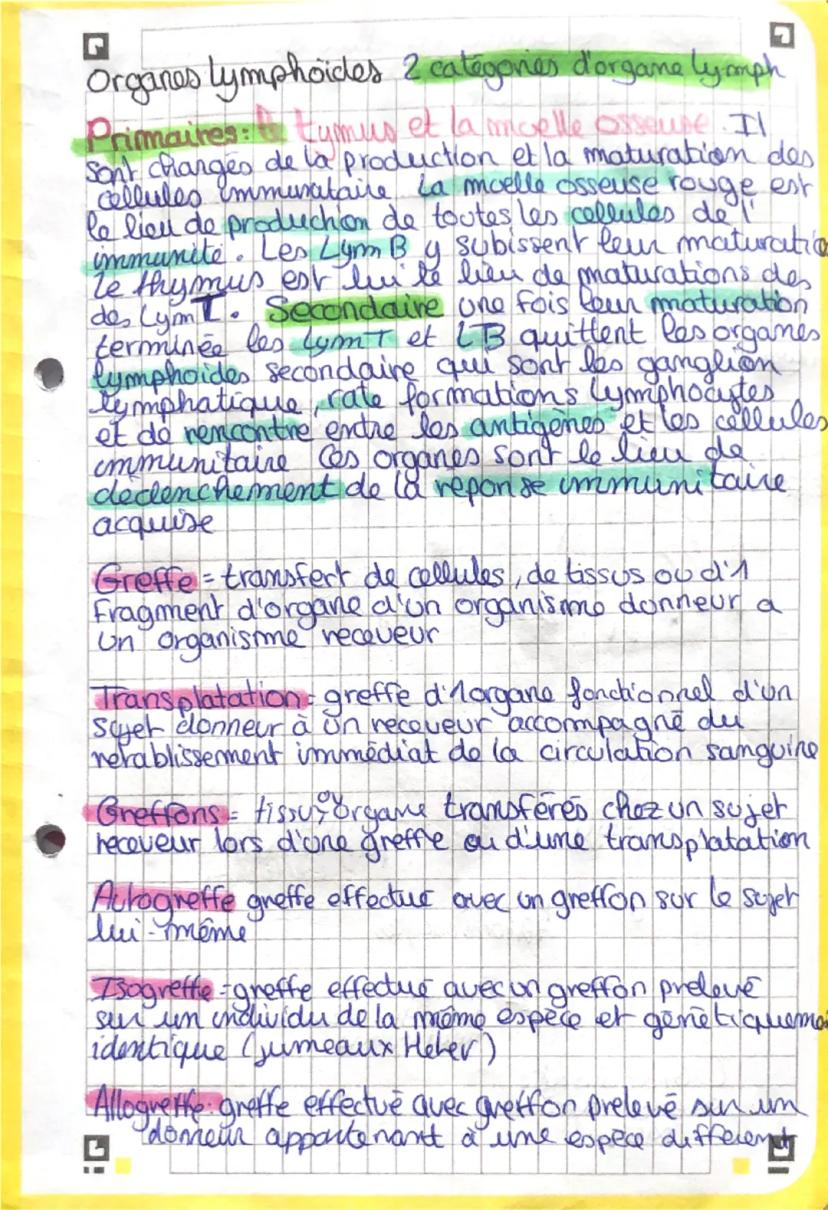 Organes lymphoïdes 2 catégories d'organe lymph
Primaires: tymus et la moelle osseuse. Il
sont changés de la production et la maturation des
cellules immunitaire La moelle osseuse rouge est
le lieu de production de toutes les cellules de l'
immunité. Les Lym B y subissent leur maturatio
Le thymus est lui le lieu de maturations des
des Lym T. Secondaire une fois leur maturation
terminée les Lym T et LB quittent les organes
lymphoides secondaire qui sont les ganglion
lymphatique, rate formations lymphocytes
et de rencontre entre les antigènes et les cellules
immunitaire Ces organes sont le lieu de
déclenchement de la réponse immunitaire
acquise
Greffe = transfert de cellules, de tissus ou d'1
Fragment d'organe d'un organisme donneur a
un organisme receveur
Transplatation = greffe d'1 organe fonctionnel d'un
sujet donneur à un receveur accompagné du
retablissement immédiat de la circulation sanguine
Greffons = tissu, ou organe transférés chez un sujet
receveur lors d'une greffe ou d'une transplatation
Autogreffe greffe effectué avec un greffon sur le sujet
lui-même
Isogreffe = greffe effectué avec un greffon prelevé
sur un individu de la même espèce et génétiqueme
identique (jumeaux Heter)
Allogreffe: greffe effectué avec greffon prelevé sur un
donneur appartenant à une espèce différent